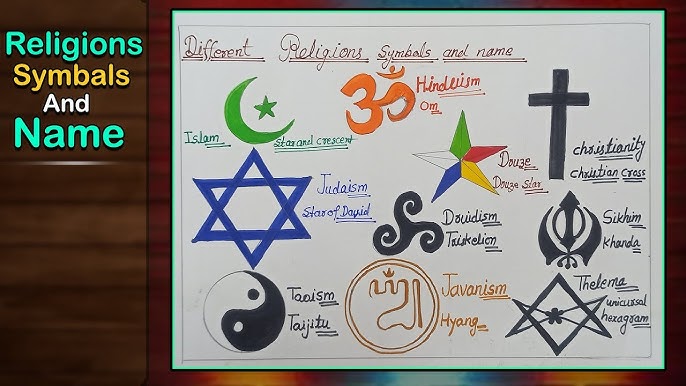 Religions
Symbals
And
Name
Different Religions Symbals and name
Islam
Star and crescent
Hinduism
Om
christianity
christian Cross
Judaism
Star of David
Douze
Douze Star
Druidism
Triskelion
Sikhim
Khanda
Taoism
Taijitu
Javanism
Hyang
Thelema
unicursal
hexagram